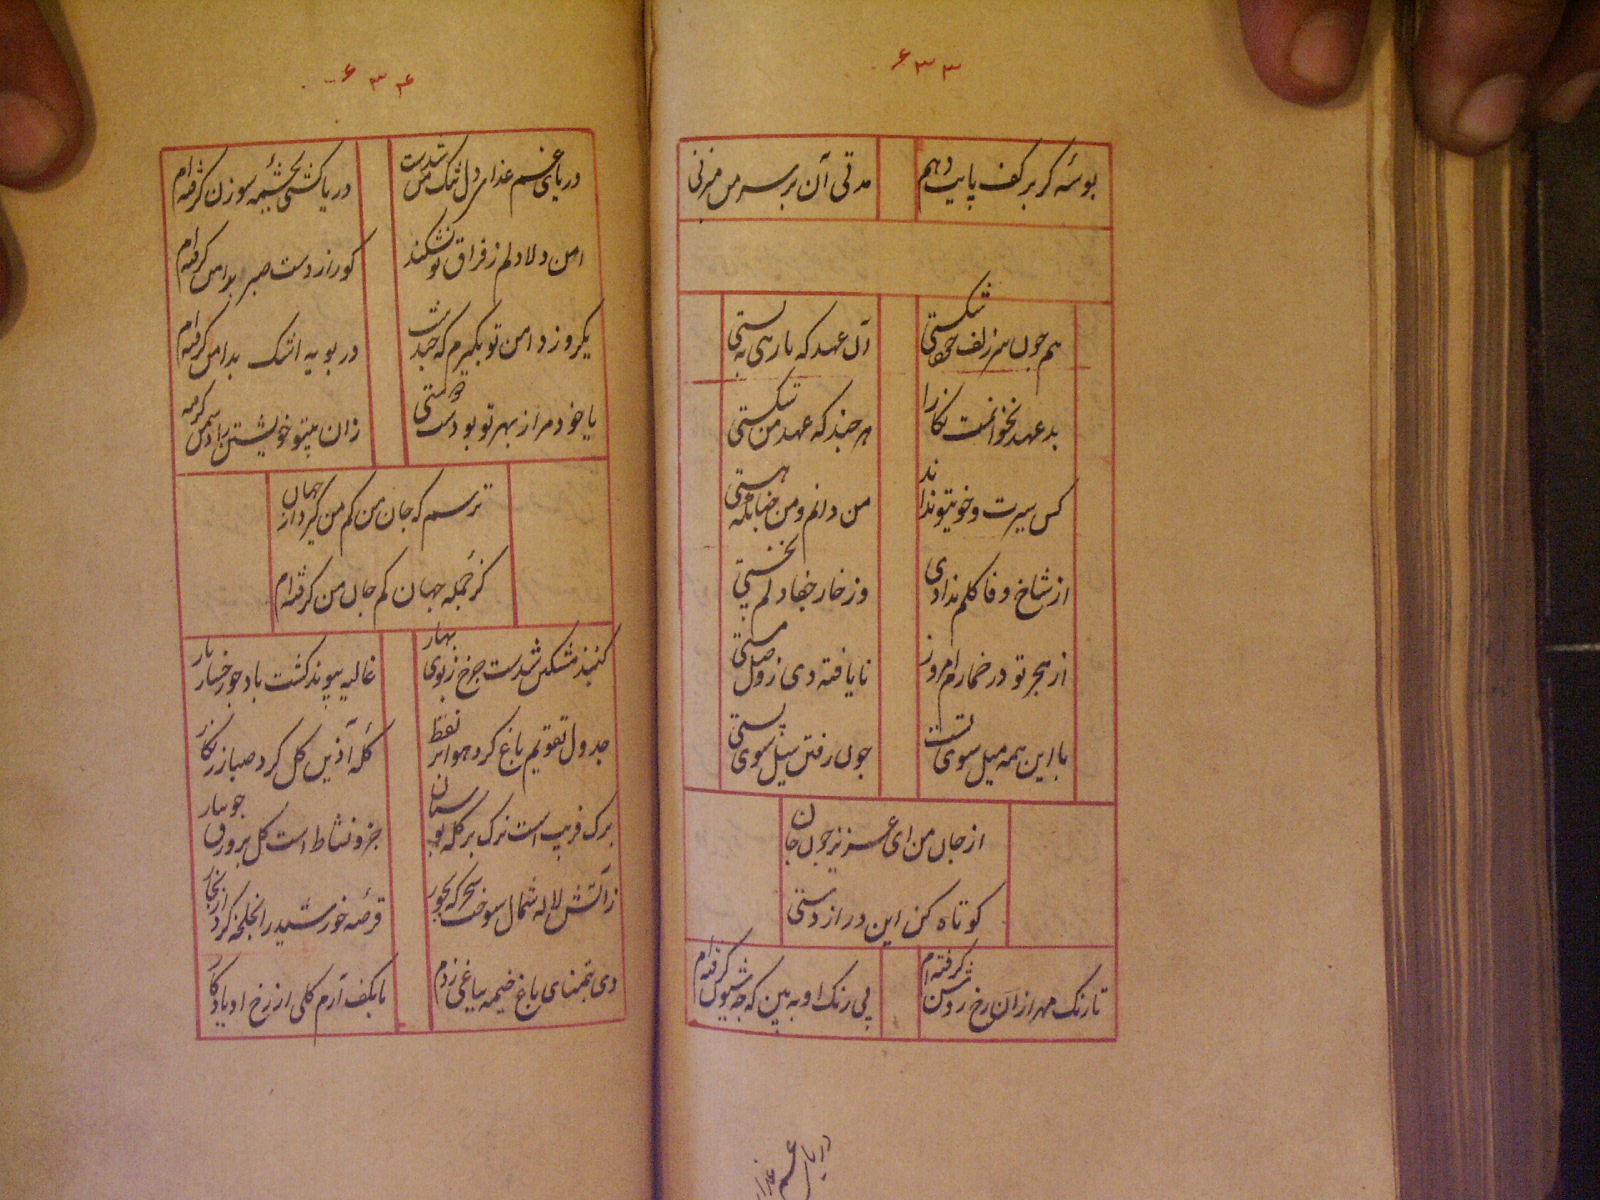 ۶۳۳
بوسه گر بر کف پایت دهم
مدتی آن بر سر من میزنی
هم چون سر زلف خود شکستی
آن عهد که با رهی به بستی
بدعهد نخوانمت نگارا
هر چند که عهد من شکستی
کس سیرت و خوی تو نداند
من دانم و من چنانکه هستی
از شاخ وفا گلم ندادی
وز خار جفا دلم بخستی
از هجر تو در خمارم امروز
نایافته دی ز وصل مستی
با این همه میل سوی تست
چون رفتن سیل سوی پستی
از جان من ای عزیز چون جان
کوتاه کن این دراز دستی
تا رنگ مهر از آن رخ روشن گرفته ام
پی رنگ او به بین که چه شیون گرفته ام
دریای غم
۶۳۴
دریای غم غذای دل تنگ من شدست
دریا کشی بچشمه سوزن گرفته ام
دلم ز فراق تو نشکند
کو را ز دست صبر بدامن گرفته ام
یکروز دامن تو بگیرم که چند شب
در بویه اشک بدامن گرفته ام
یا خود مرا ز بهر تو بودست دوستی
زان بیتو خویشتن را دشمن گرفته ام
ترسم که جان من کم من گیرد از جهان
کز جمله جهان کم جان من گرفته ام
گنبد مشکین شدست چرخ ز بوی بهار
غالیه پیوند گشت باد چو رخسار یار
جدول تقویم باغ کرد هوا پر نقط
کله آذین گل کرد صبا زرنگار
برگ فریب است ترک بر گله بوستان
جز و نشاط است گل بر ورق جویبار
ز آتش لاله شمال سوخت سحرگه بخور
قرصه خورشید را لخلخه کرد از بخار
دی بتمنای باغ خیمه بباغی زدم
تا بکف آرم گلی از رخ او یادگار